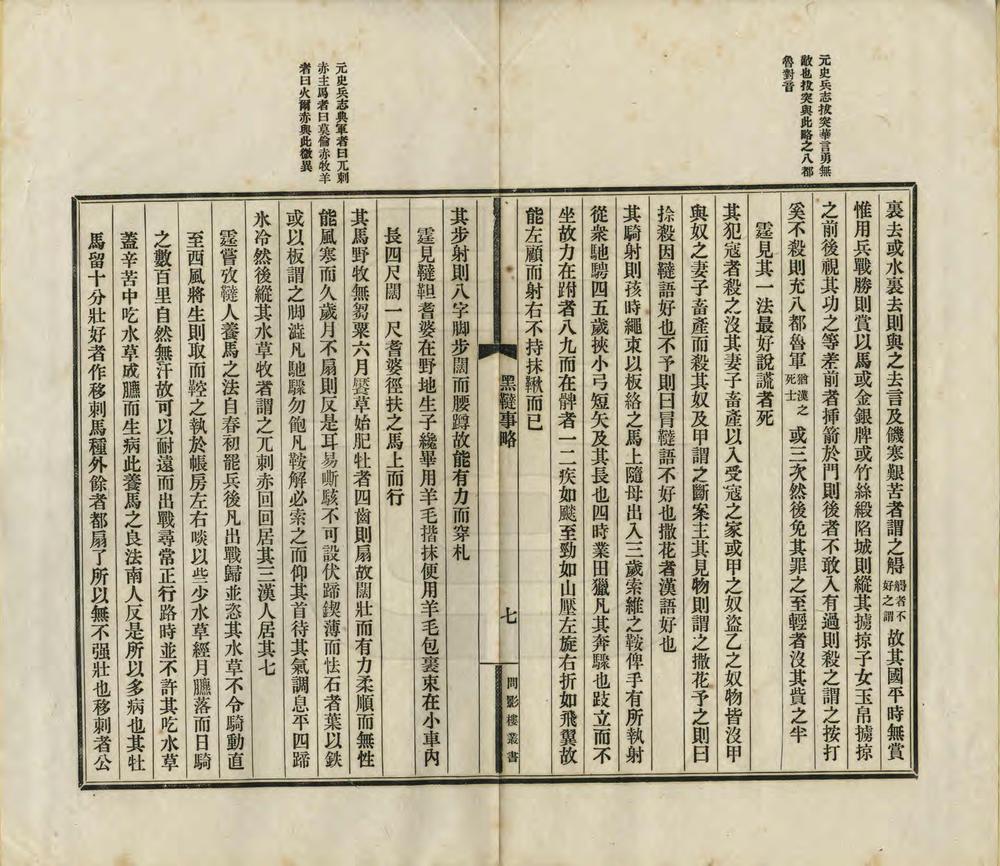 元史兵志拔突華言勇無
敵也拔突與此略之八都
魯對音
裏去或水裏去則與之去言及饑寒艱苦者謂之䚟䚟者不好之謂故其國平時無賞
惟用兵戰勝則賞以馬或金銀牌或竹絲緞陷城則縱其擄掠子女玉帛擄掠
之前後視其功之等差前者揷箭於門則後者不敢入有過則殺之謂之按打
奚不殺則充八都魯軍猶漢之死士或三次然後免其罪之至輕者沒其貲之半
霆見其一法最好說謊者死
其犯寇者殺之沒其妻子畜產以入受寇之家或甲之奴盜乙之奴物皆沒甲
與奴之妻子畜產而殺其奴及甲謂之斷案主其見物則謂之撒花予之則曰
捺殺因韃語好也不予則曰冐韃語不好也撒花者漢語好也
其騎射則孩時繩束以板絡之馬上隨母出入三歲索維之鞍俾手有所執射
從衆馳騁四五歲挾小弓短矢及其長也四時業田獵凡其奔驟也跂立而不
坐故力在跗者八九而在髀者一二疾如飈至勁如山壓左旋右折如飛翼故
能左顧而射右不持抹鞦而已
黑韃事略
七
問影樓叢書
元史兵志典軍者曰兀剌
赤主馬者曰莫倫赤牧羊
者曰火爾赤與此微異
其步射則八字脚步闊而腰蹲故能有力而穿札
霆見韃靼耆婆在野地生子纔畢用羊毛揩抹便用羊毛包裹束在小車內
長四尺闊一尺耆婆徑扶之馬上而行
其馬野牧無芻粟六月饜草始肥牡者四齒則扇故闊壯而有力柔順而無性
能風寒而久歲月不扇則反是耳易嘶駭不可設伏蹄鍥薄而怯石者葉以鉄
或以板謂之脚澁凡馳驟勿飽凡鞍解必索之而仰其首待其氣調息平四蹄
氷冷然後縱其水草牧者謂之兀剌赤回回居其三漢人居其七
霆嘗攷韃人養馬之法自春初罷兵後凡出戰歸並恣其水草不令騎動直
至西風將生則取而鞚之執於帳房左右啖以些少水草經月臕落而日騎
之數百里自然無汗故可以耐遠而出戰尋常正行路時並不許其吃水草
蓋辛苦中吃水草成臕而生病此養馬之良法南人反是所以多病也其牡
馬留十分壯好者作移剌馬種外餘者都扇了所以無不强壯也移剌者公